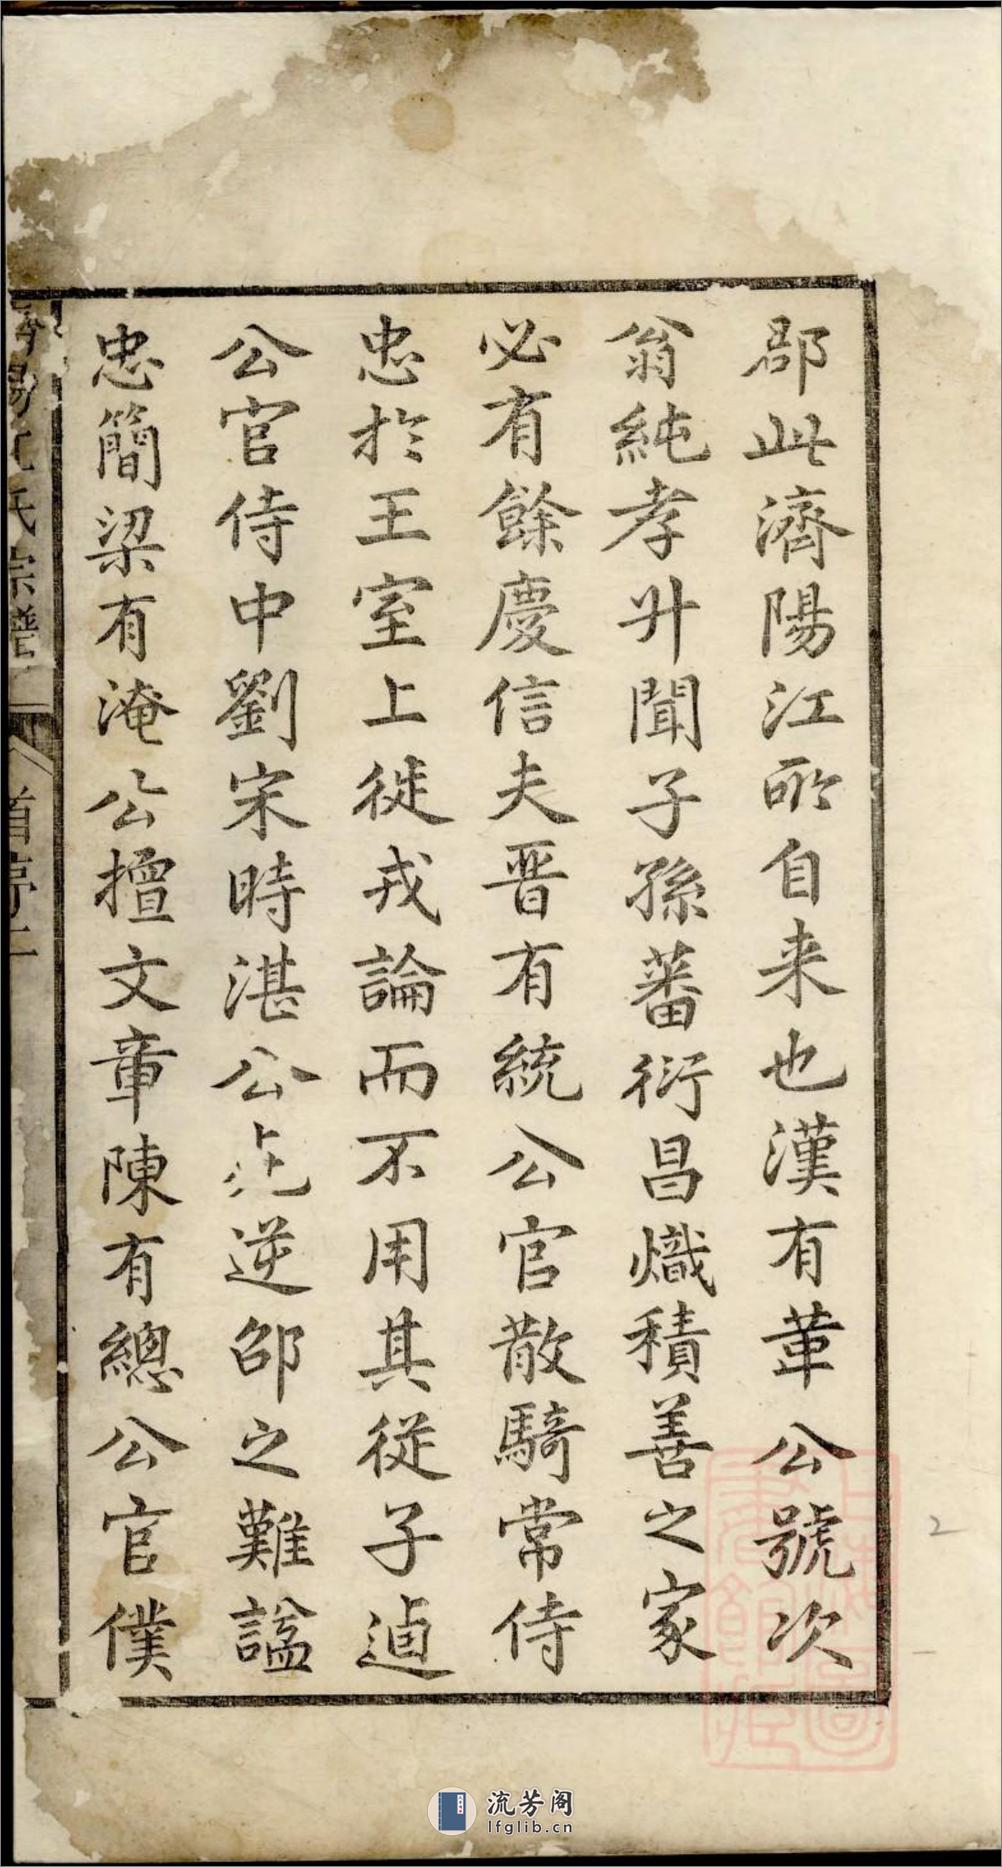 郡此濟陽江所自来也漢有革公號次
翁純孝升聞子孫蕃衍昌熾積善之家
必有餘慶信夫晋有統公官散騎常侍
忠於王室上徙戎論而不用其從子逌
公官侍中劉宋時湛公死逆邵之難諡
忠簡梁有淹公擅文章陳有總公官僕
陽江氏宗譜
首序二
2
流芳阁
lfglib.cn